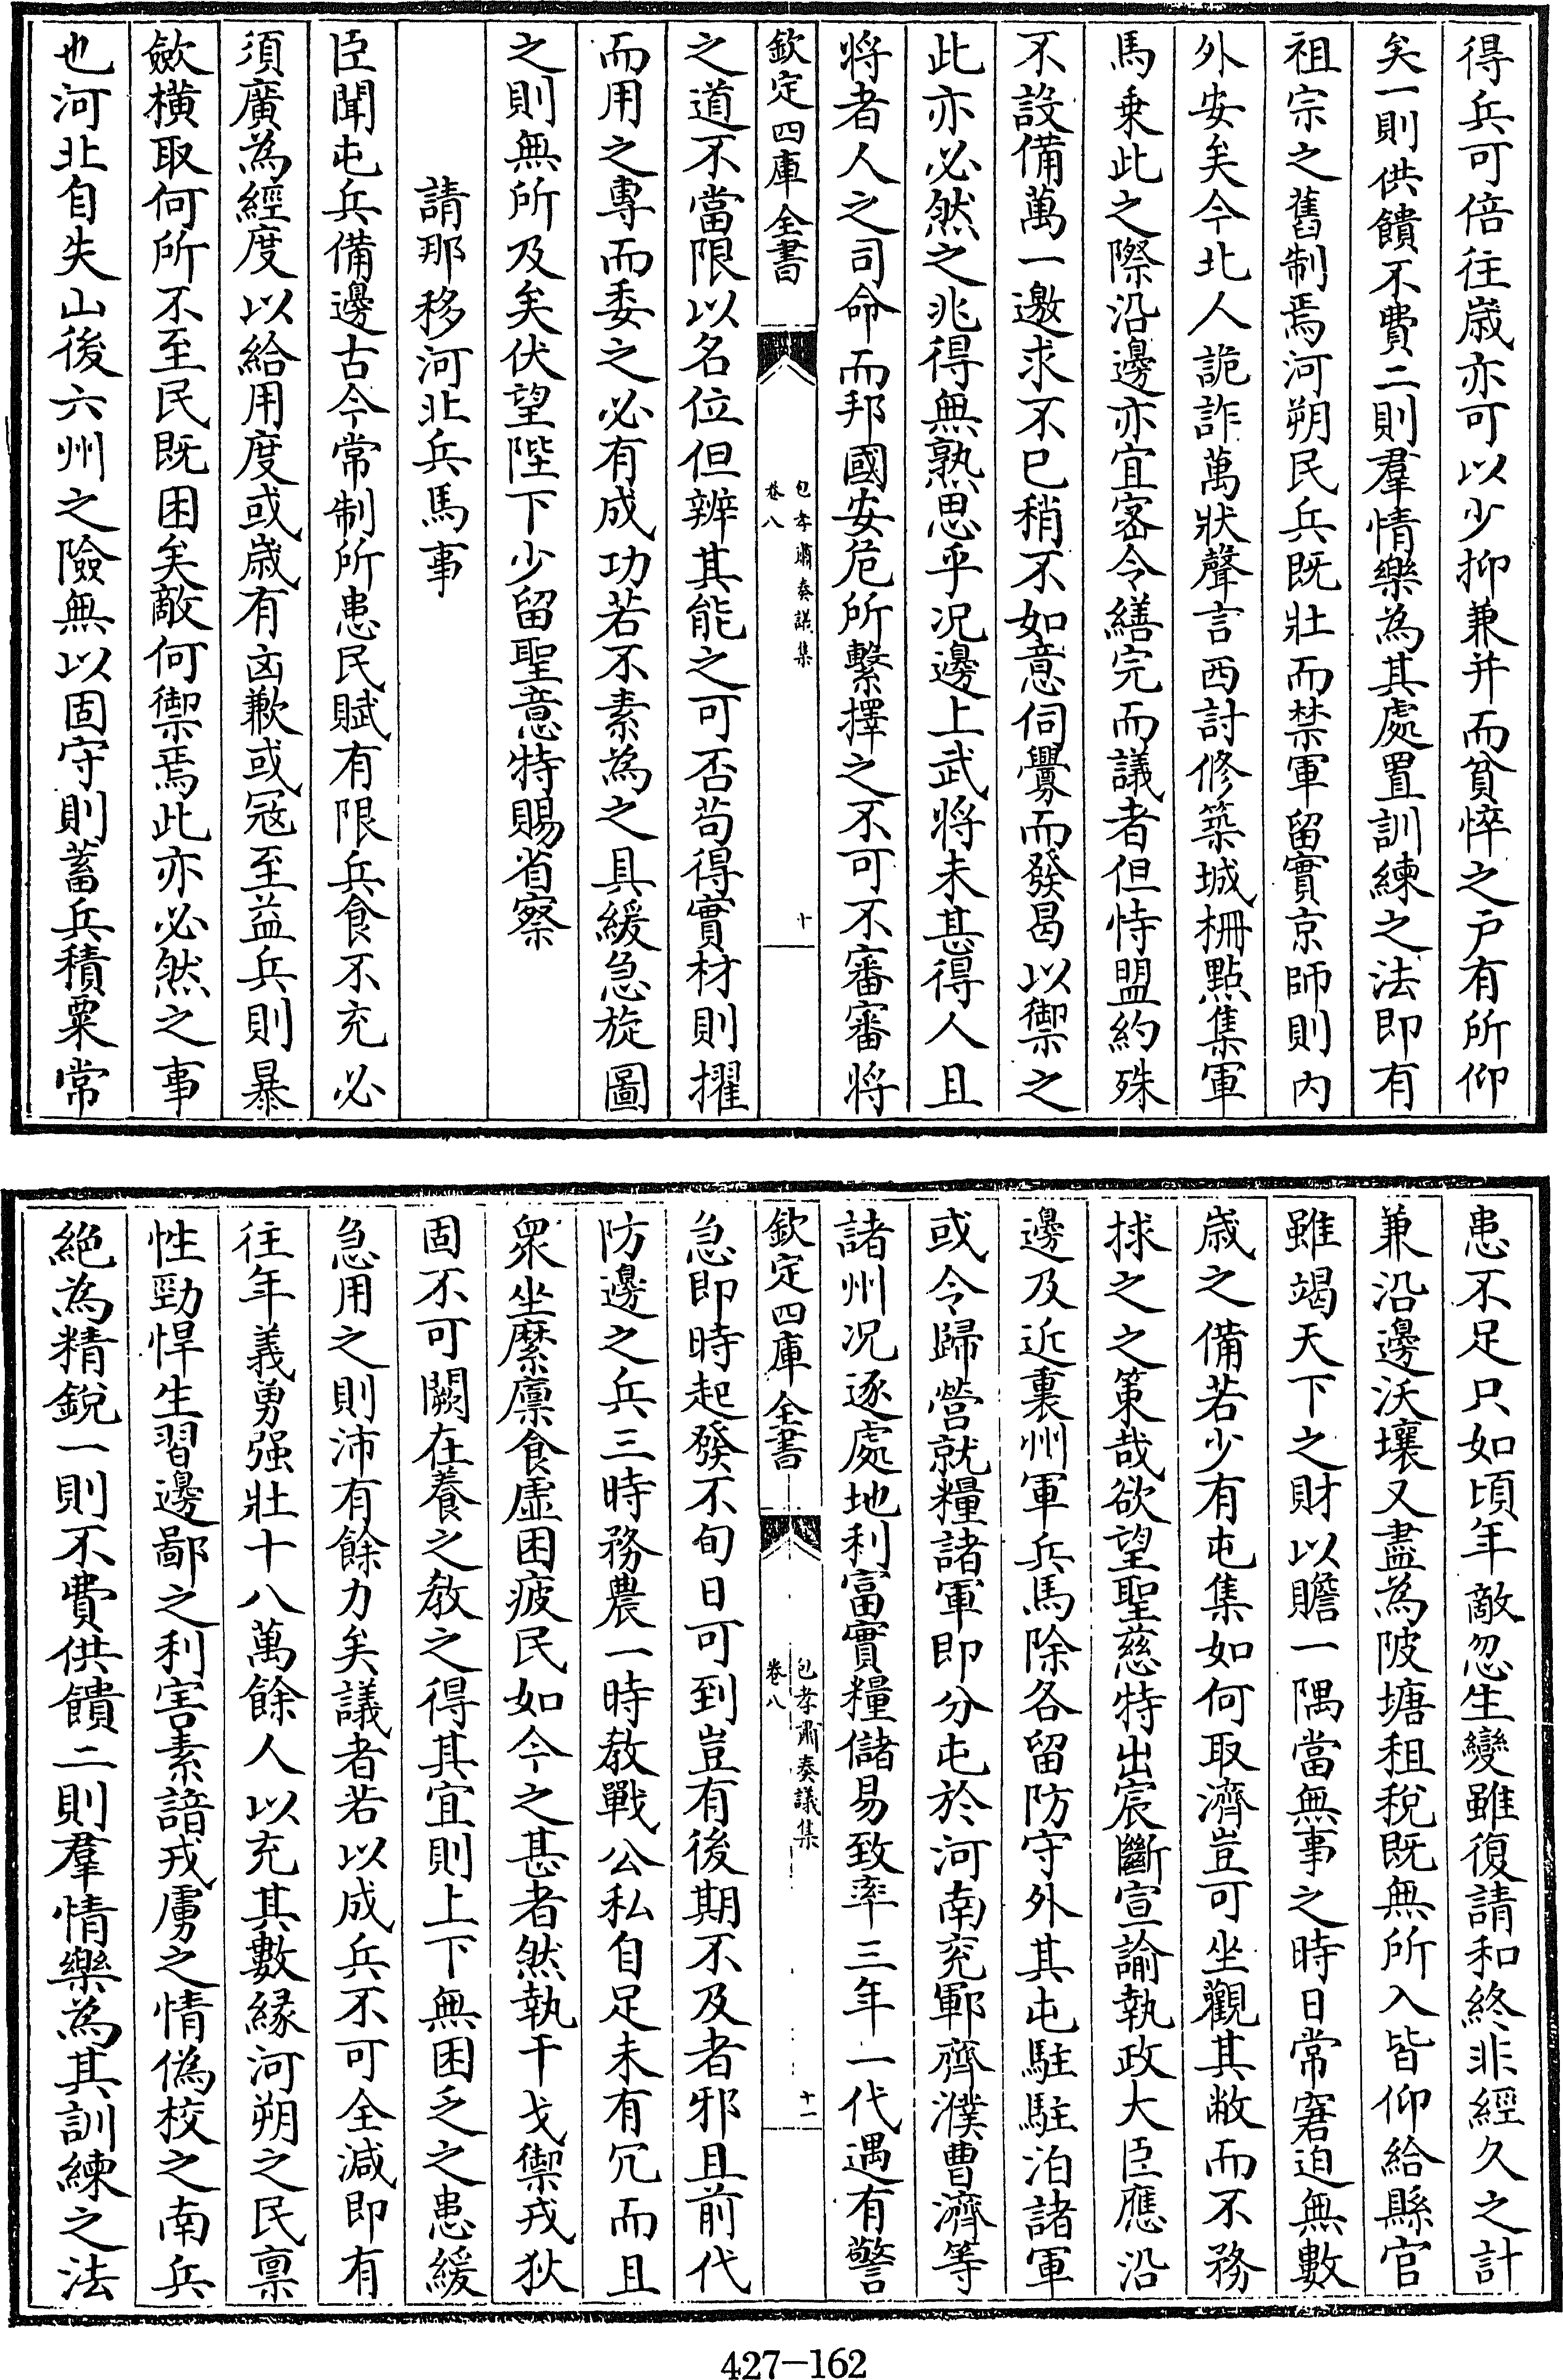 得兵可倍往嵗亦可以少抑兼并而貧悴之户有所仰
矣一則供饋不費二則羣情樂為其處置訓練之法即有
祖宗之舊制焉河朔民兵既壯而禁軍留實京師則内
外安矣今北人詭詐萬狀聲言西討修築城柵點集軍
馬乗此之際沿邊亦宜宻令繕完而議者但恃盟約殊
不設備萬一邀求不已稍不如意伺釁而發曷以禦之
此亦必然之兆得無熟思乎况邊上武将未甚得人且
将者人之司命而邦國安危所繫擇之不可不審審将
欽定四庫全書
包孝肅奏議集
卷八
十
之道不當限以名位但辨其能之可否苟得實材則擢
而用之專而委之必有成功若不素為之具緩急旋圖
之則無所及矣伏望陛下少留聖意特賜省察
請那移河北兵馬事
臣聞屯兵備邊古今常制所患民賦有限兵食不充必
須廣為經度以給用度或嵗有凶歉或冦至益兵則暴
歛横取何所不至民既困矣敵何禦焉此亦必然之事
也河北自失山後六州之險無以固守則蓄兵積粟常
患不足只如頃年敵忽生變雖復請和終非經久之計
兼沿邊沃壤又盡為陂塘租稅既無所入皆仰給縣官
雖竭天下之財以贍一隅當無事之時日常窘迫無數
嵗之備若少有屯集如何取濟豈可坐觀其敝而不務
捄之之策哉欲望聖慈特出宸斷宣諭執政大臣應沿
邊及近裏州軍兵馬除各留防守外其屯駐駐泊諸軍
或令歸營就糧諸軍即分屯於河南兖鄆齊濮曹濟等
諸州况逐處地利富實糧儲易致率三年一代遇有警
欽定四庫全書
包孝肅奏議集
卷八
十一
急即時起發不旬日可到豈有後期不及者邪且前代
防邊之兵三時務農一時教戰公私自足未有冗而且
衆坐縻廪食虚困疲民如今之甚者然執干戈禦戎狄
固不可闕在養之教之得其宜則上下無困乏之患緩
急用之則沛有餘力矣議者若以成兵不可全減即有
往年義勇强壯十八萬餘人以充其數縁河朔之民禀
性勁悍生習邊鄙之利害素諳戎虜之情偽校之南兵
絶為精銳一則不費供饋二則羣情樂為其訓練之法
427-162